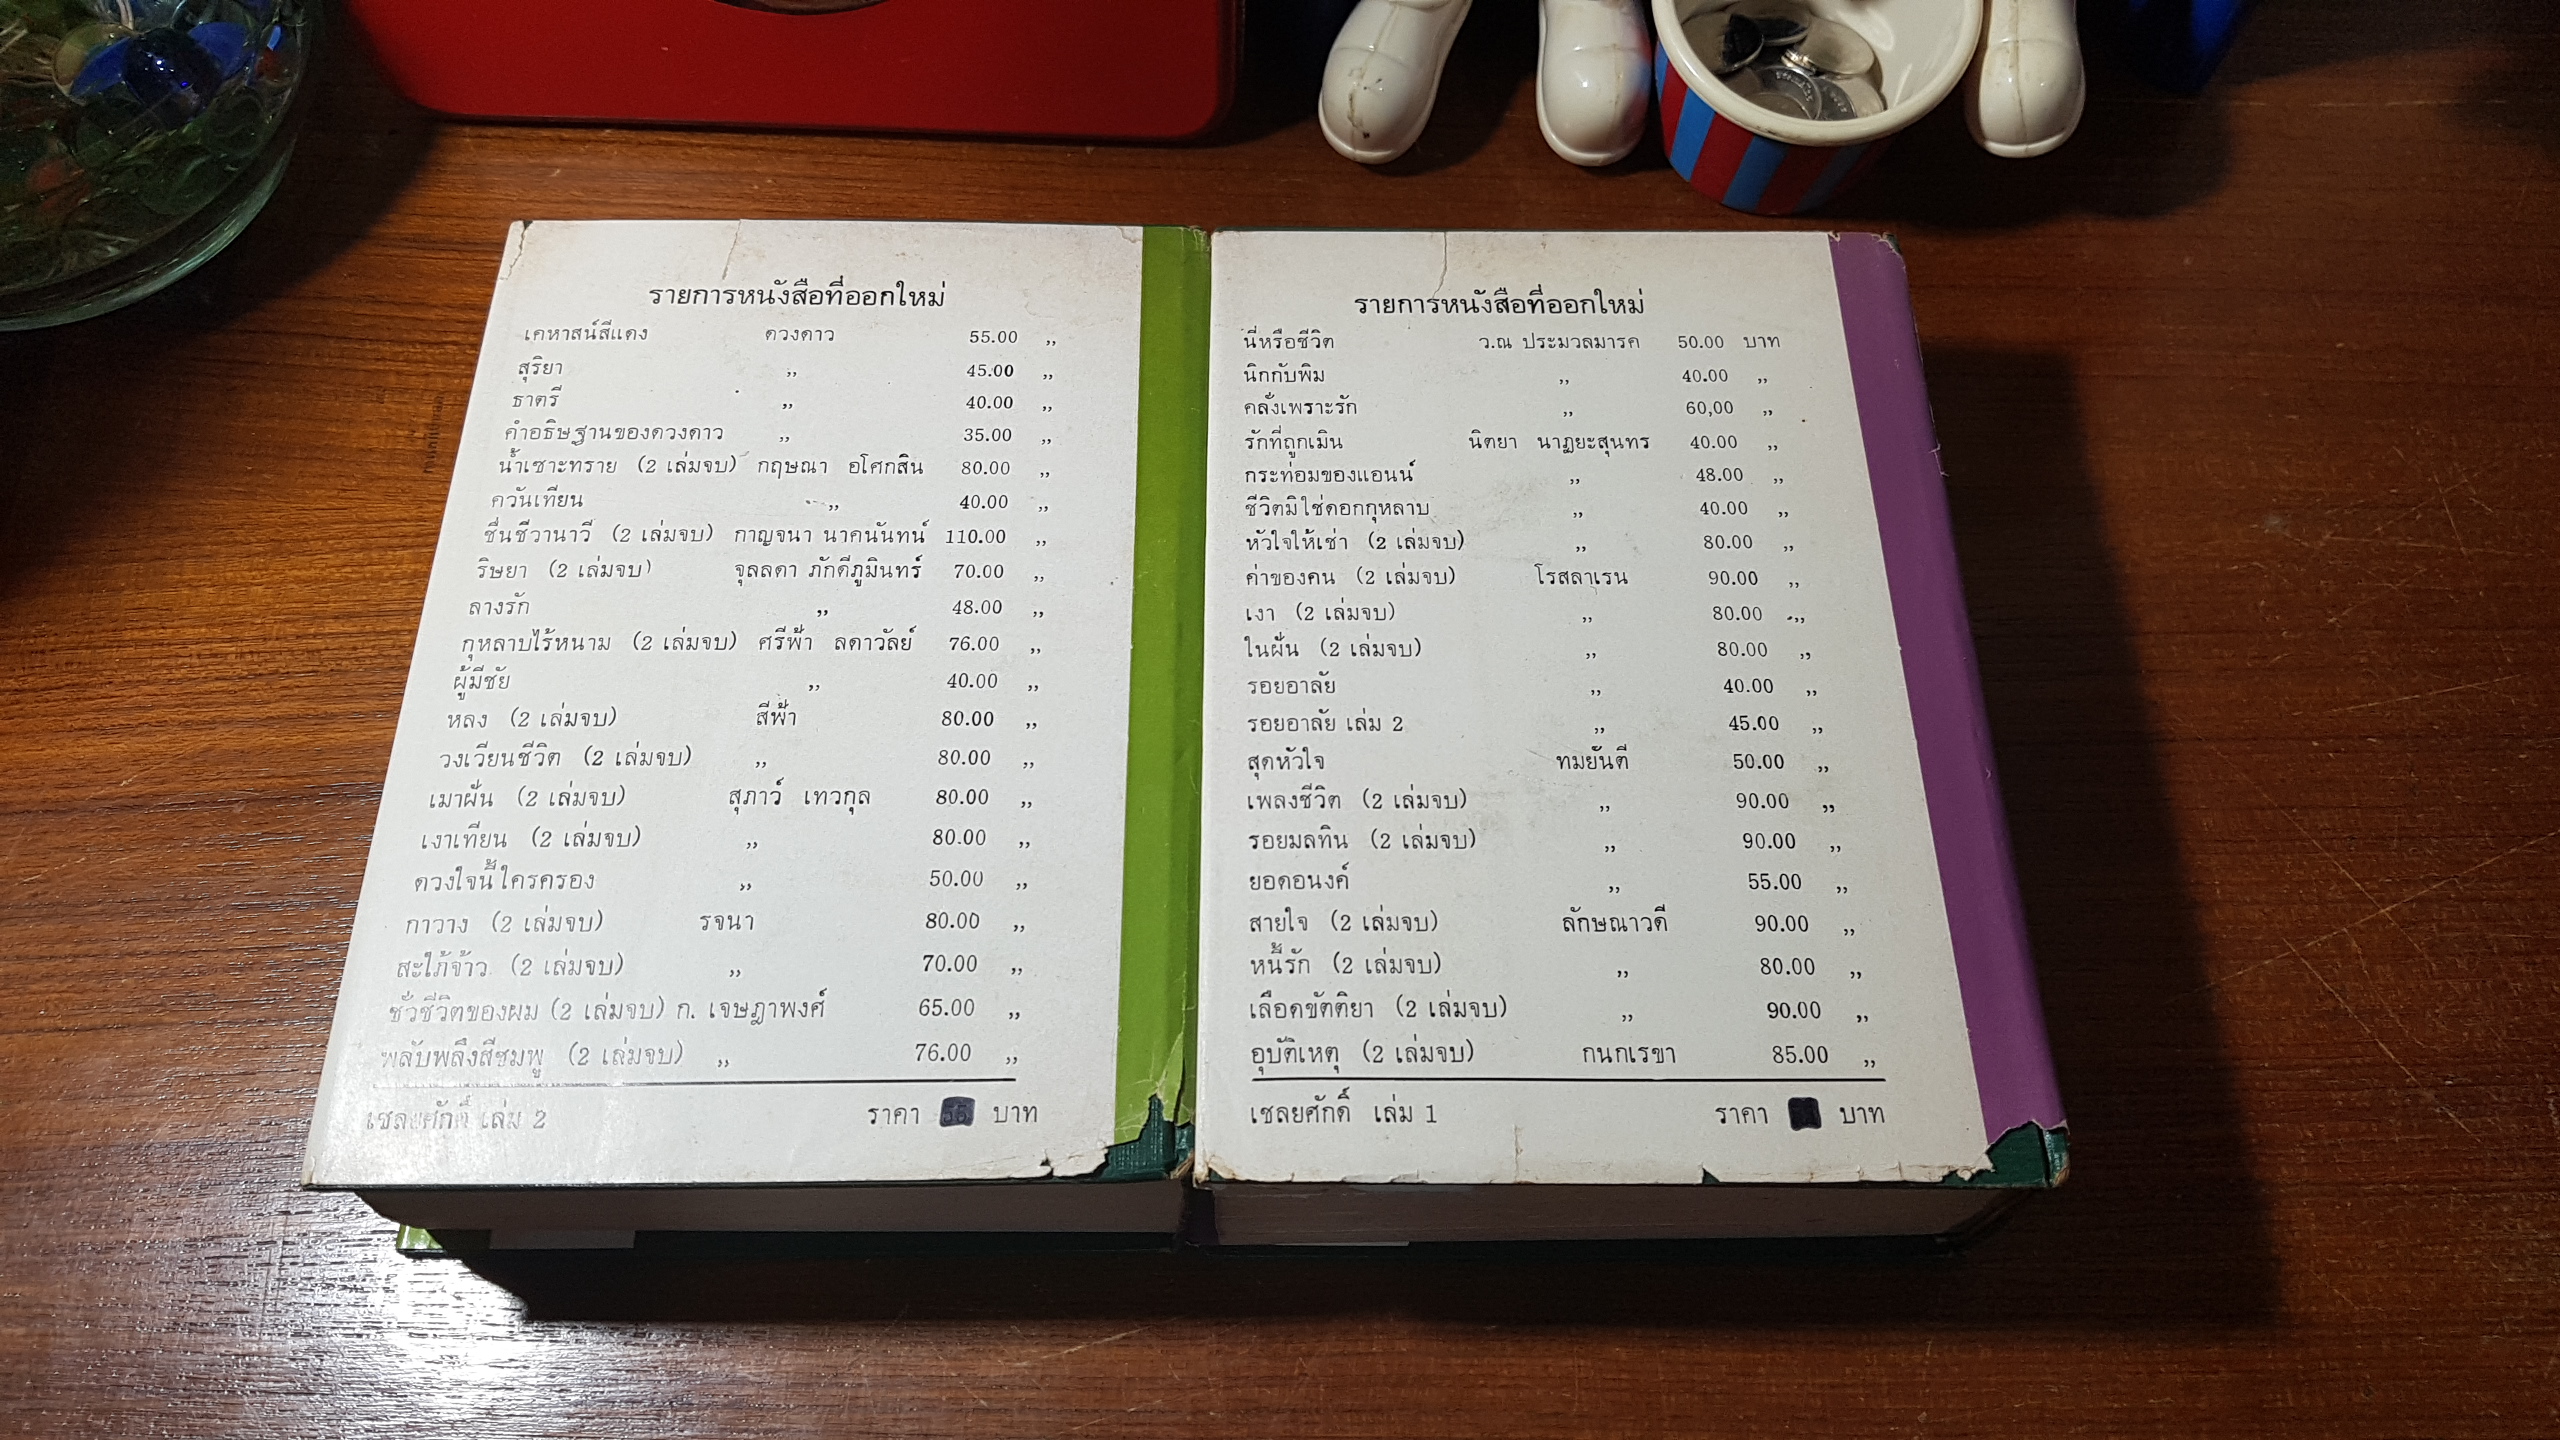 รายการหนังสือที่ออกใหม่
เคหาสน์สีแดง ดวงดาว 55.00 ,,
สุริยา ,, 45.00 ,,
ธาตรี ,, 40.00 ,,
คำอธิษฐานของดวงดาว ,, 35.00 ,,
น้ำเซาะทราย (2 เล่มจบ) กฤษณา อโศกสิน 80.00 ,,
ควันเทียน ,, 40.00 ,,
ชื่นชีวานาวี (2 เล่มจบ) กาญจนา นาคนันทน์ 110.00 ,,
ริษยา (2 เล่มจบ) จุลลดา ภักดีภูมินทร์ 70.00 ,,
ลางรัก ,, 48.00 ,,
กุหลาบไร้หนาม (2 เล่มจบ) ศรีฟ้า ลดาวัลย์ 76.00 ,,
ผู้มีชัย ,, 40.00 ,,
หลง (2 เล่มจบ) สีฟ้า 80.00 ,,
วงเวียนชีวิต (2 เล่มจบ) ,, 80.00 ,,
เมาฝั่น (2 เล่มจบ) สุภาว์ เทวกุล 80.00 ,,
เงาเทียน (2 เล่มจบ) ,, 80.00 ,,
ดวงใจนี้ใครครอง ,, 50.00 ,,
กาวาง (2 เล่มจบ) รจนา 80.00 ,,
สะใภ้จ้าว (2 เล่มจบ) ,, 70.00 ,,
ชั่วชีวิตของผม (2 เล่มจบ) ก. เจษฎาพงศ์ 65.00 ,,
พลับพลึงสีชมพู (2 เล่มจบ) ,, 76.00 ,,
เชลยศักดิ์ เล่ม 2 ราคา 55 บาท
รายการหนังสือที่ออกใหม่
นี่หรือชีวิต ว.ณ ประมวลมารค 50.00 บาท
นิกกับพิม ,, 40.00 ,,
คลั่งเพราะรัก ,, 60,00 ,,
รักที่ถูกเมิน นิตยา นาฏยะสุนทร 40.00 ,,
กระท่อมของแอนน์ ,, 48.00 ,,
ชีวิตมิใช่ดอกกุหลาบ ,, 40.00 ,,
หัวใจให้เช่า (2 เล่มจบ) ,, 80.00 ,,
ค่าของคน (2 เล่มจบ) โรสลาเรน 90.00 ,,
เงา (2 เล่มจบ) ,, 80.00 ,,
ในฝั่น (2 เล่มจบ) ,, 80.00 ,,
รอยอาลัย ,, 40.00 ,,
รอยอาลัย เล่ม 2 ,, 45.00 ,,
สุดหัวใจ ทมยันตี 50.00 ,,
เพลงชีวิต (2 เล่มจบ) ,, 90.00 ,,
รอยมลทิน (2 เล่มจบ) ,, 90.00 ,,
ยอดอนงค์ ,, 55.00 ,,
สายใจ (2 เล่มจบ) ลักษณาวดี 90.00 ,,
หนี้รัก (2 เล่มจบ) ,, 80.00 ,,
เลือดขัตติยา (2 เล่มจบ) ,, 90.00 ,,
อุบัติเหตุ (2 เล่มจบ) กนกเรขา 85.00 ,,
เชลยศักดิ์ เล่ม 1 ราคา บาท